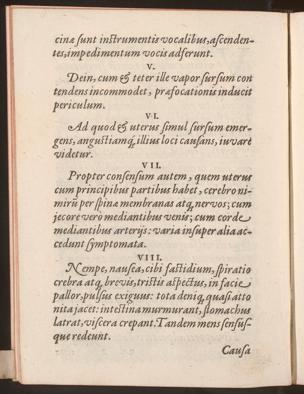 cinæ sunt instrumentis vocalibus, ascenden-
tes, impedimentum vocis adferunt.
V.
Dein, cum & teter ille vapor sursum con
tendens incommodet, præfocationis inducit
periculum.
VI.
Ad quod & uterus simul sursum emer-
gens, angustiamq́; illius loci causans, iuvare
videtur.
VII.
Propter consensum autem, quem uterus
cum principibus partibus habet, cerebro ni-
mirū per spinæ membranas atq; nervos; cum
jecore verò mediantibus venis; cum corde
mediantibus arterijs: varia insuper alia ac-
cedunt symptomata.
VIII.
Nempe, nausea, cibi fastidium, spiratio
crebra atq; brevis, tristis aspectus, in facie
pallor, pulsus exiguus: tota deniq; quasi atto
nita jacet: intestina murmurant, stomachus
latrat, viscera crepant. Tandem mens sensus-
que redeunt.
Causa